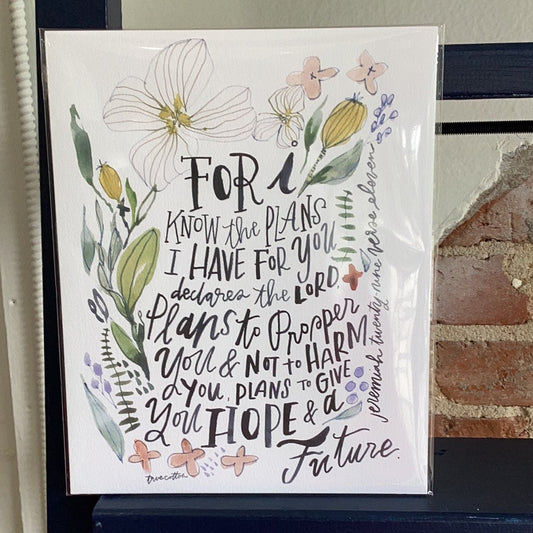 FOR i
KNOW the PLANS
I HAVE FOR YOU
declares the LORD,
Plans to Prosper
You & NOT to HARM
you, PLANS to GIVE
You HOPE & a
Future.
jeremiah twenty nine verse eleven
truecotton